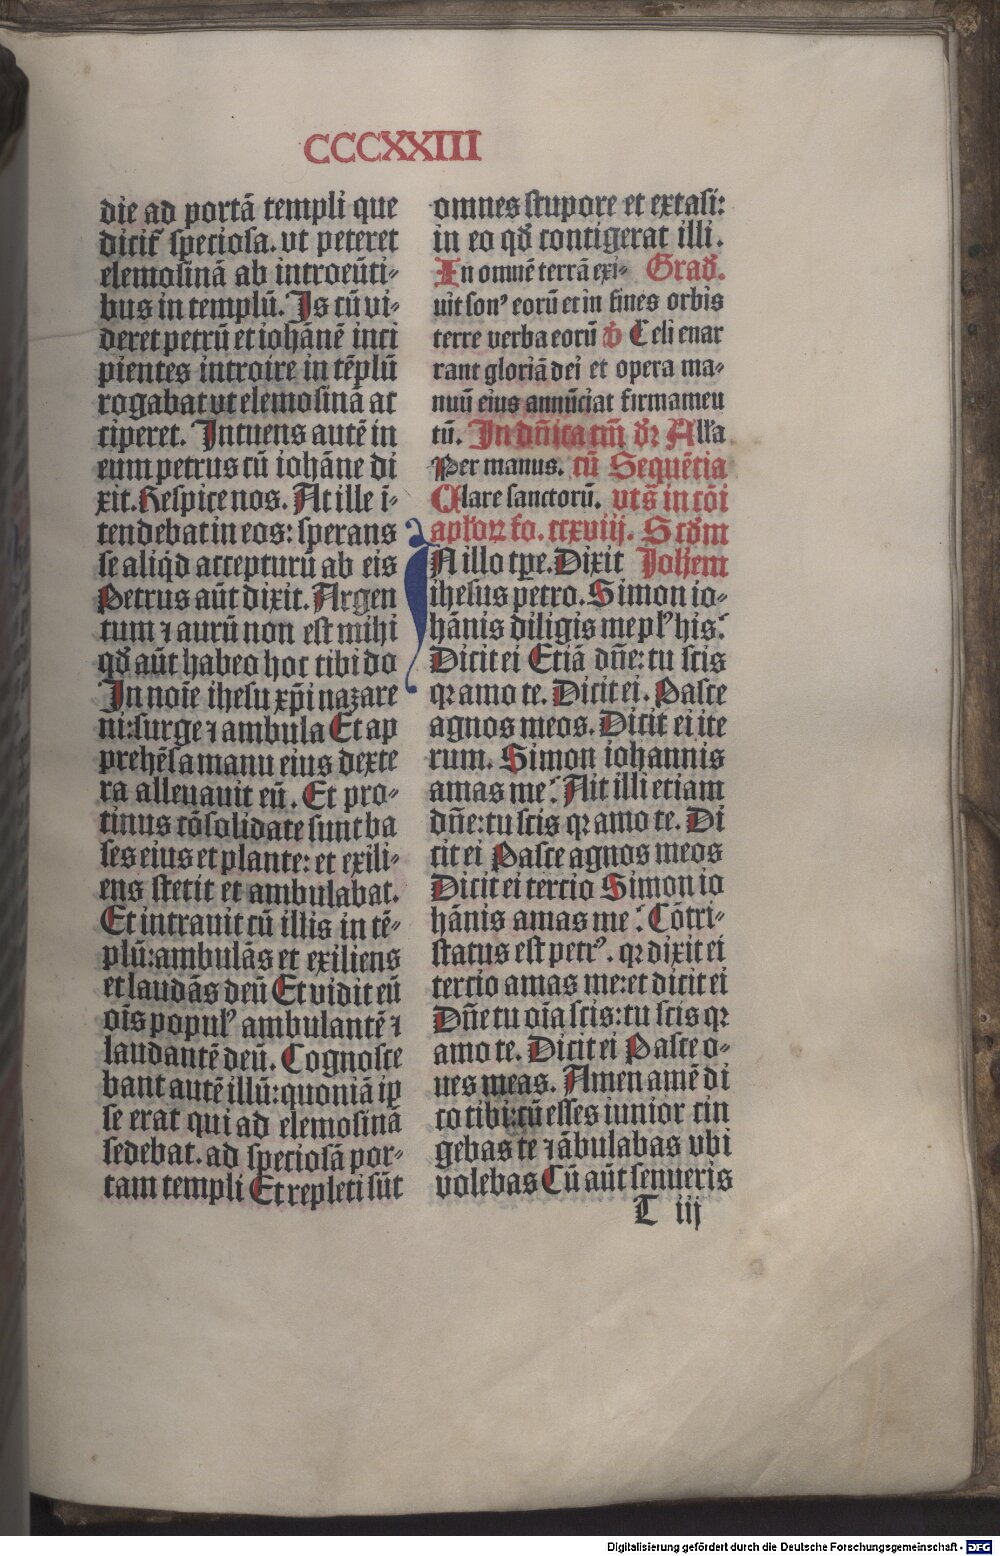 CCCXXIII
die ad portã templi que
dicit᷑ speciosa. vt peteret
elemosinã ab introeũti-
bus in templũ. Is cũ vi-
deret petrũ et iohãnẽ inci
pientes introire in tẽplũ
rogabat vt elemosinã ac
ciperet. Intuens autẽ in
eum petrus cũ iohãne di
xit. Respice nos. At ille ĩ-
tendebat in eos: sperans
se aliqd accepturũ ab eis
Petrus aũt dixit. Argen
tum ⁊ aurũ non est mihi
qð aũt habeo hoc tibi do
In noĩe ihesu xp̃i nazare
ni: surge ⁊ ambula Et ap
prehẽsa manu eius dexte
ra alleuauit eũ. Et pro-
tinus cõsolidate sunt ba
ses eius et plante: et exili-
ens stetit et ambulabat.
Et intrauit cũ illis in tẽ-
plũ: ambulãs et exiliens
et laudãs deũ Et vidit eũ
oĩs popul᷒ ambulantẽ ⁊
laudantẽ deũ. Cognosce
bant autẽ illũ: quoniã ip̃
se erat qui ad elemosinã
sedebat. ad speciosã por-
tam templi Et repleti sũt
omnes stupore et extasi:
in eo qð contigerat illi.
In omnẽ terrã exi- Grað.
uit son᷒ eorũ et in fines orbis
terre verba eorũ v̾ Celi enar
rant gloriã dei et opera ma-
nuũ eius annũciat firmameu
tũ. In dñica tm̃ dr̃ Alľa
Per manus. cũ Sequẽtia
Clare sanctorũ. vts̃ in cõi
apľoꝝ fo. ccxviij. S cðm
IN illo tp̃e. Dixit Johẽm
ihesus petro. Simon io-
hãnis diligis me pl᷒ his?
Dicit ei Etiã dñe: tu scis
qꝛ amo te. Dicit ei. Pasce
agnos meos. Dicit ei ite
rum. Simon iohannis
amas me? Ait illi etiam
dñe: tu scis qꝛ amo te. Di
cit ei Pasce agnos meos
Dicit ei tercio Simon io
hãnis amas me? Cõtri-
status est petr᷒. qꝛ dixit ei
tercio amas me: et dicit ei
Dñe tu oĩa scis: tu scis qꝛ
amo te. Dicit ei Pasce o-
ues meas. Amen amẽ di
co tibi: cũ esses iunior cin
gebas te ⁊ ãbulabas vbi
volebas Cũ aũt senueris
T iij
Digitalisierung gefördert durch die Deutsche Forschungsgemeinschaft - DFG